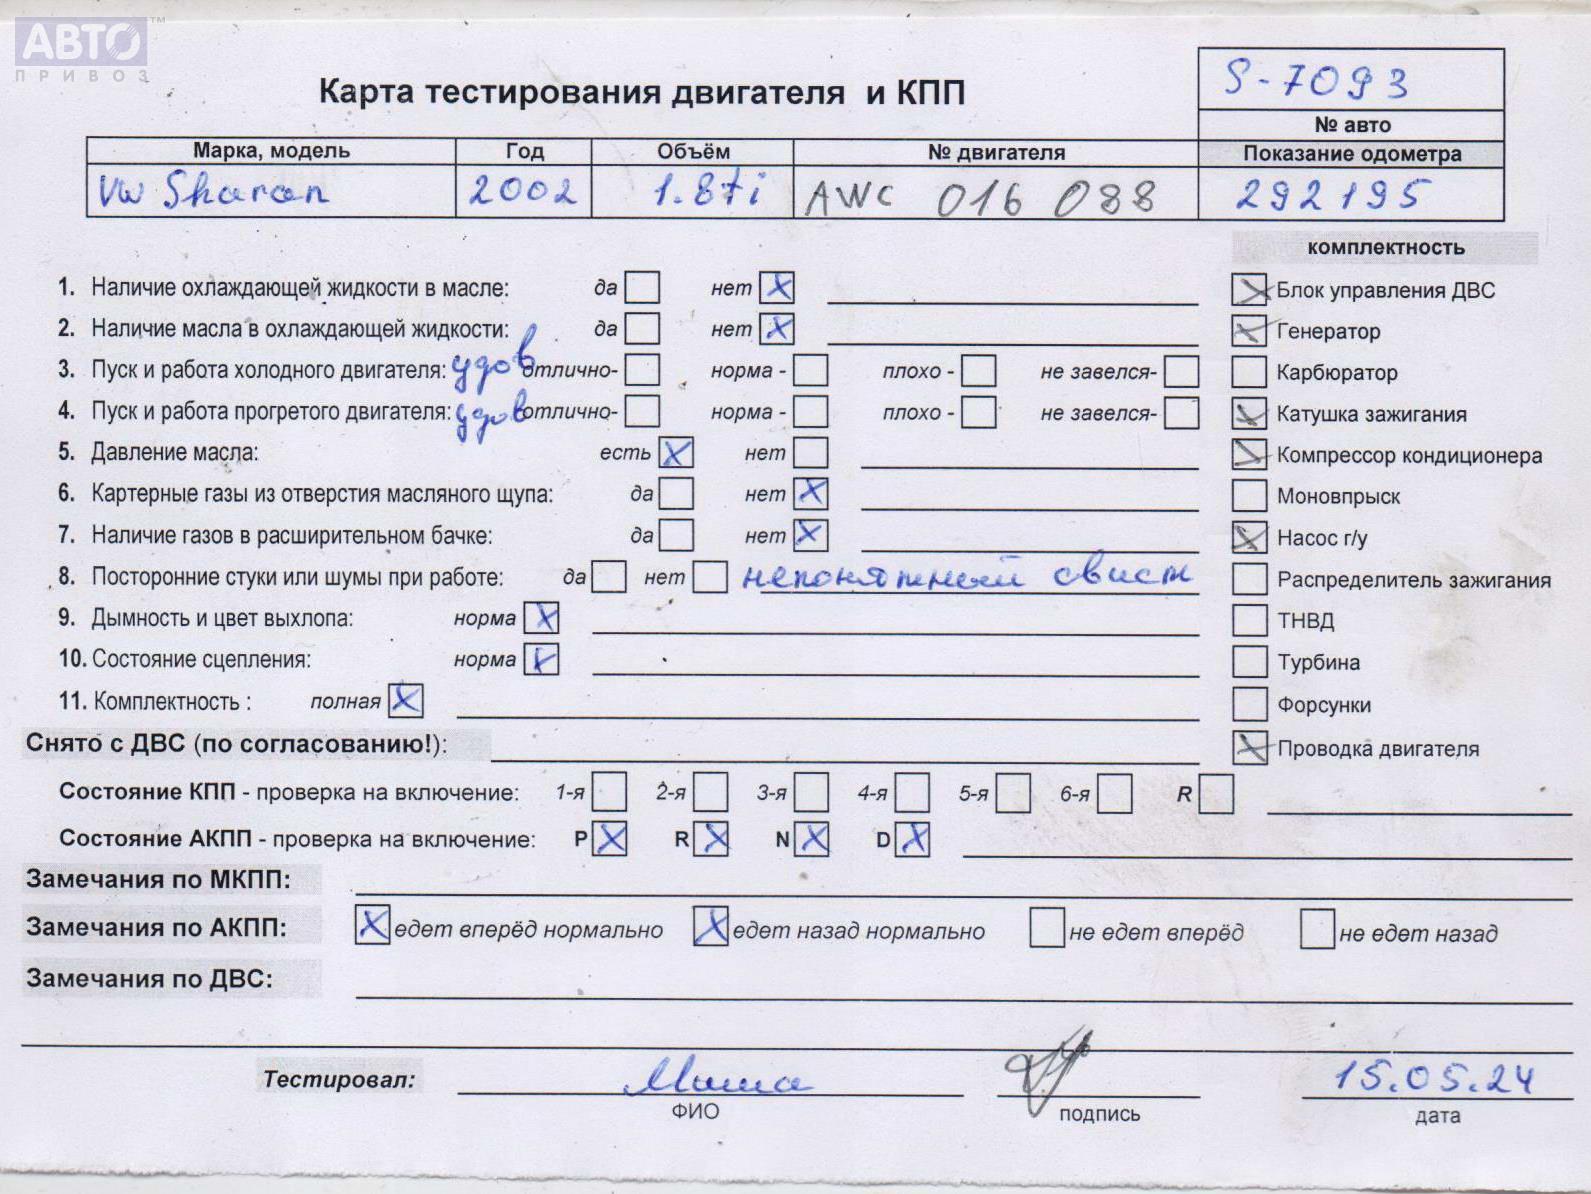 АВТО ™
ПРИВОЗ
Карта тестирования двигателя и КПП
S-7093
№ авто
Марка, модель Год Объём № двигателя Показание одометра
VW Sharan 2002 1.8Ti AWC 016 088 292195
комплектность
1. Наличие охлаждающей жидкости в масле: да нет X Блок управления ДВС
2. Наличие масла в охлаждающей жидкости: да нет X Генератор
3. Пуск и работа холодного двигателя: удов отлично- норма - плохо - не завелся- Карбюратор
4. Пуск и работа прогретого двигателя: удов отлично- норма - плохо - не завелся- Катушка зажигания
5. Давление масла: есть X нет Компрессор кондиционера
6. Картерные газы из отверстия масляного щупа: да нет X Моновпрыск
7. Наличие газов в расширительном бачке: да нет X Насос г/у
8. Посторонние стуки или шумы при работе: да нет непонятный свист Распределитель зажигания
9. Дымность и цвет выхлопа: норма X ТНВД
10. Состояние сцепления: норма X Турбина
11. Комплектность : полная X Форсунки
Снято с ДВС (по согласованию!): Проводка двигателя
Состояние КПП - проверка на включение: 1-я 2-я 3-я 4-я 5-я 6-я R
Состояние АКПП - проверка на включение: P X R X N X D X
Замечания по МКПП:
Замечания по АКПП: X едет вперёд нормально X едет назад нормально не едет вперёд не едет назад
Замечания по ДВС:
Тестировал: Миша 15.05.24
ФИО подпись дата